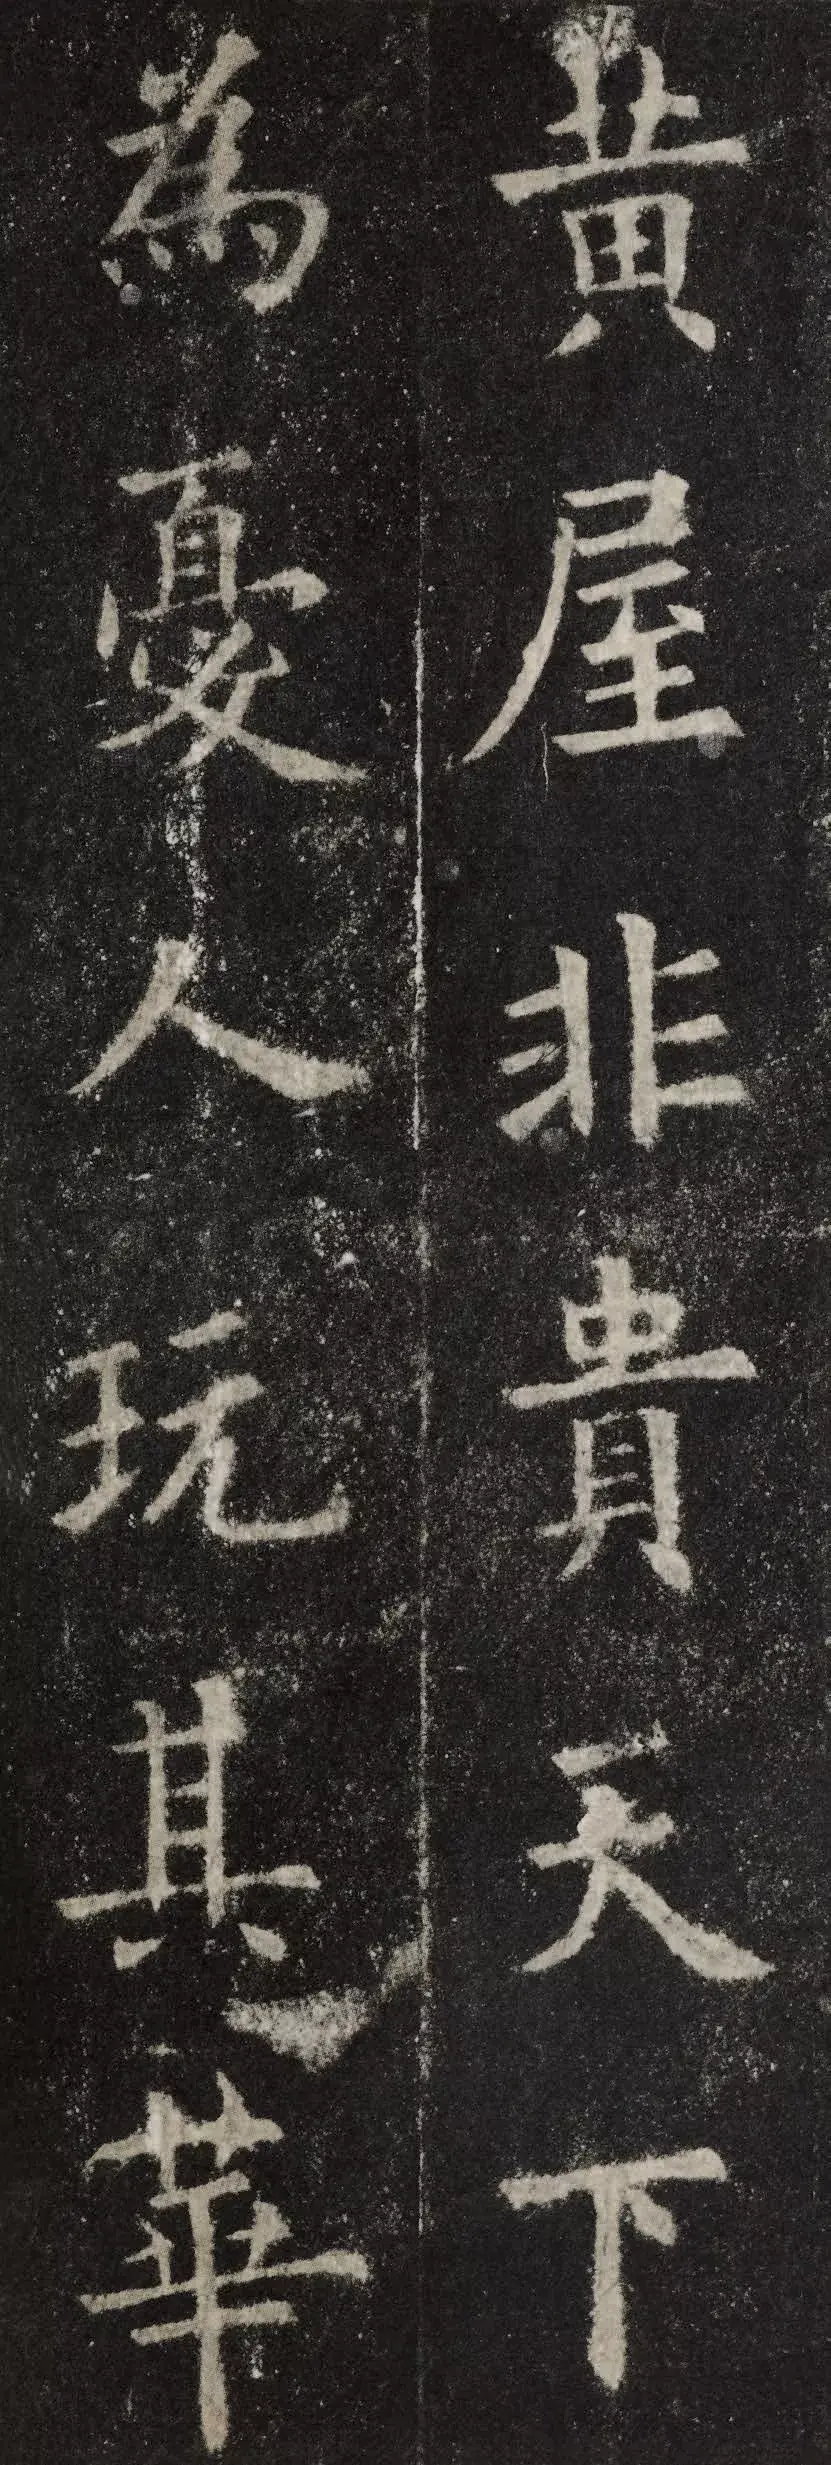 黄屋非貴天下
為憂人玩其華